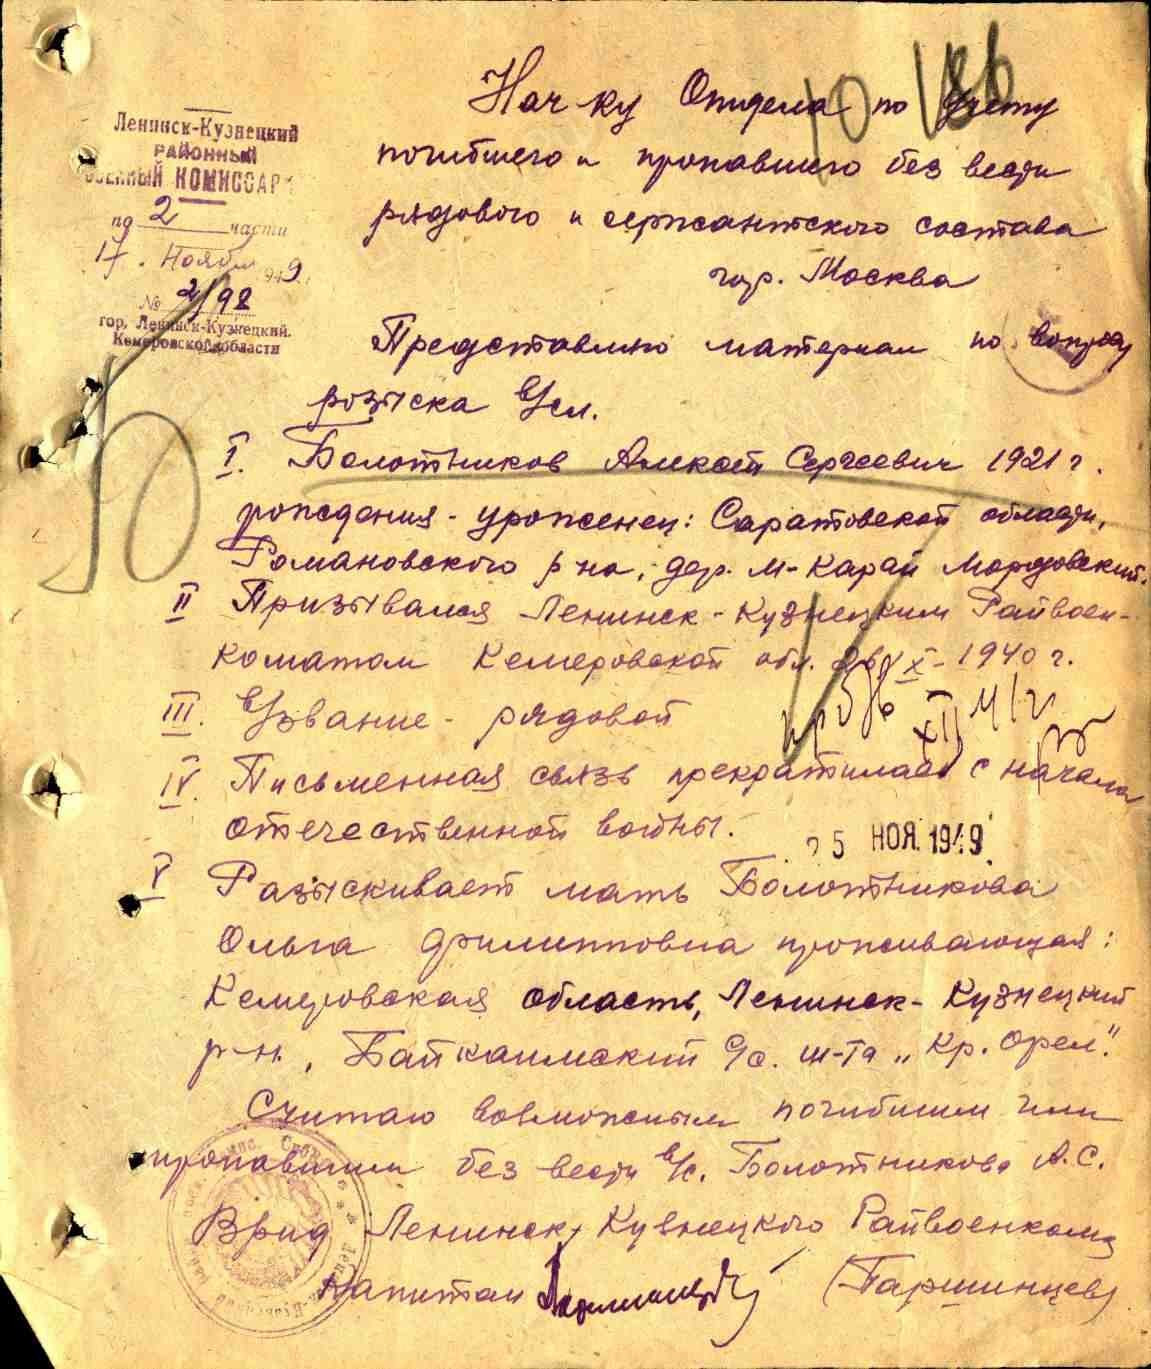 10 186
Ленинск-Кузнецкий
РАЙОННЫЙ
ВОЕННЫЙ КОМИССАР
по 2 части
17. Ноября 1949.
№ 2/98
гор. Ленинск-Кузнецкий.
Кемеровской области
Нач-ку Отдела по учету
погибшего и пропавшего без вести
рядового и сержантского состава
гор. Москва
Представляю материал по вопросу
розыска в/сл.
I. Болотников Алексей Сергеевич 1921 г.
рождения - уроженец: Саратовской области,
Романовского р-на, дер. М-Карай Мордовский.
II Призывался Ленинск-Кузнецким Райвоен-
коматом Кемеровской обл. в X - 1940 г.
III. В/звание - рядовой
пр б/в XII 41 г
IV. Письменная связь прекратилась с начала
отечественной войны.
25 НОЯ. 1949
V Разыскивает мать Болотникова
Ольга Филипповна проживающая:
Кемеровская область, Ленинск-Кузнецкий
р-н., Байкаимский с/с. ш-та „Кр. Орел".
Считаю возможным погибшим или
пропавшим без вести в/с. Болотникова А.С.
Врид Ленинск-Кузнецкого Райвоенкома
капитан (Паршинцев)